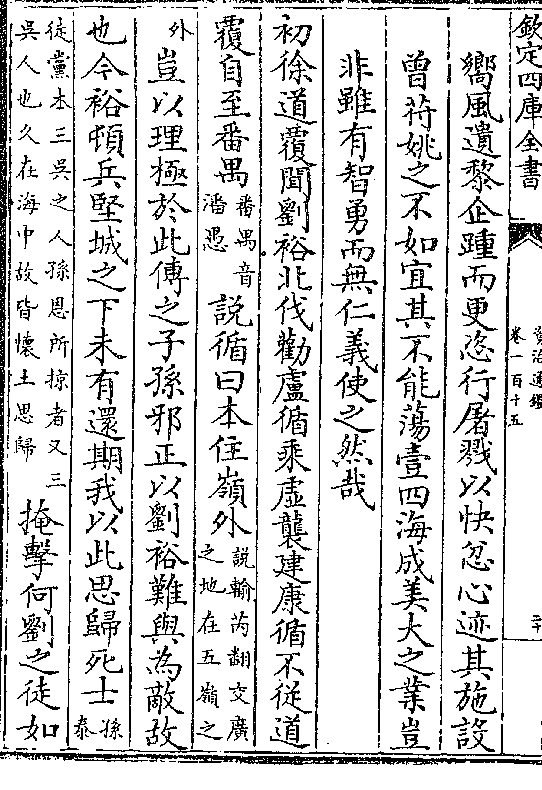 欽定四庫全書
資治通鑑
卷一百十五
嚮風遺黎企踵而更恣行屠戮以快忿心迹其施設
曾苻姚之不如宜其不能蕩壹四海成美大之業豈
非雖有智勇而無仁義使之然哉
初徐道覆聞劉裕北伐勸盧循乘虛襲建康循不從道
覆自至番禺
番禺音
潘愚
說循曰本住嶺外
說輸芮翻交廣
之地在五嶺之
外
豈以理極於此傳之子孫邪正以劉裕難與為敵故
也今裕頓兵堅城之下未有還期我以此思歸死士
孫
泰
徒黨本三吳之人孫恩所掠者又三
吳人也久在海中故皆懷土思歸
掩擊何劉之徒如